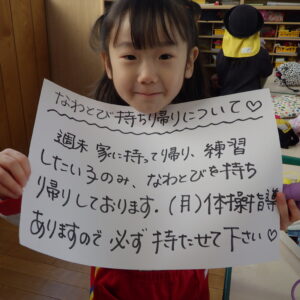 なわとび持ち帰りについて♡
週末 家に持って帰り、練習
したい子のみ、なわとびを持ち
帰りしております。(月)体操指導
ありますので 必ず 持たせて下さい♡